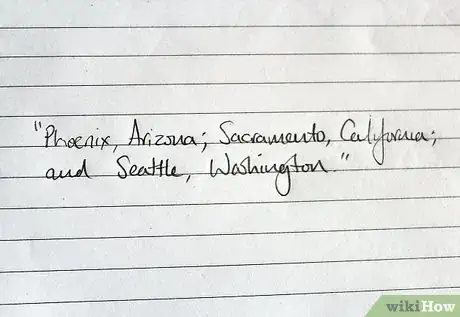 "Phoenix, Arizona; Sacramento, California;
and Seattle, Washington."
wikiHow